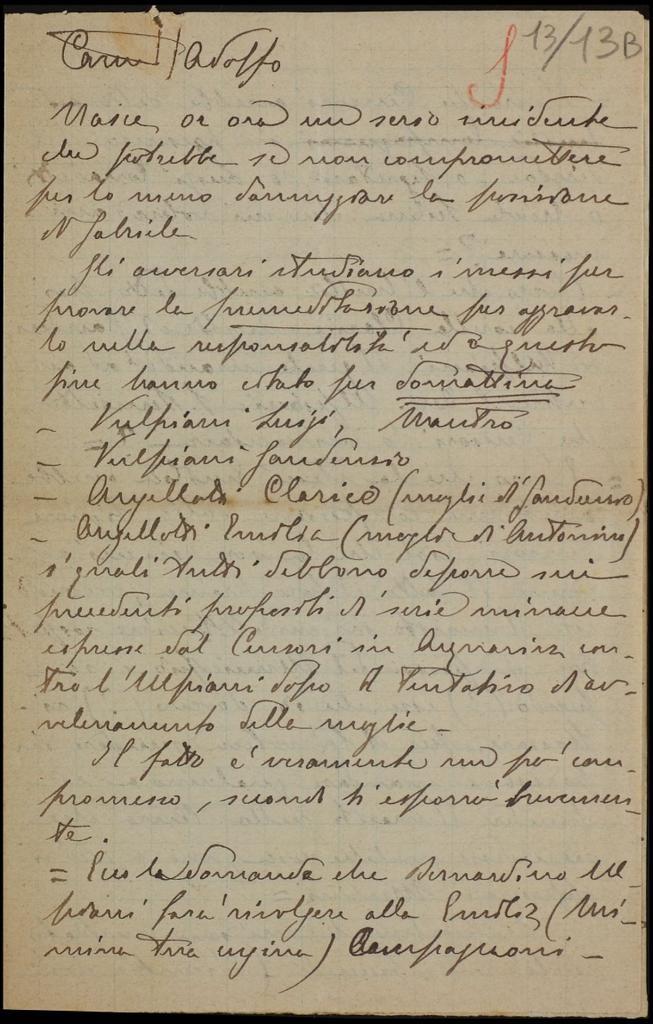 13/13B
Caro Adolfo
Nasce or ora un serio incidente
che potrebbe se non compromettere
per lo meno danneggiare la posizione
di Gabriele
Gli avversari studiano i mezzi per
provare la premeditazione per aggravar-
lo nella responsabilità ed a questo
fine hanno citato per domattina
- Vulpiani Luigi, Maestro
- Vulpiani Gaudenzio
- Angellotti Clarice (moglie di Gaudenzio)
- Angellotti Emilia (moglie di Antonino)
i quali tutti debbono deporre sui
precedenti propositi di serie minacce
espresse dal Censori in Acquaviva con-
tro l'Ulpiani dopo il tentativo di av-
velenamento della moglie -
Il fatto è veramente un pò com-
promesso, secondo ti esporrò brevemen-
te.
= Ecco la domanda che Bernardino Ul-
piani farà rivolgere alla Emilia (Mi-
mina tua cugina) Compagnoni -